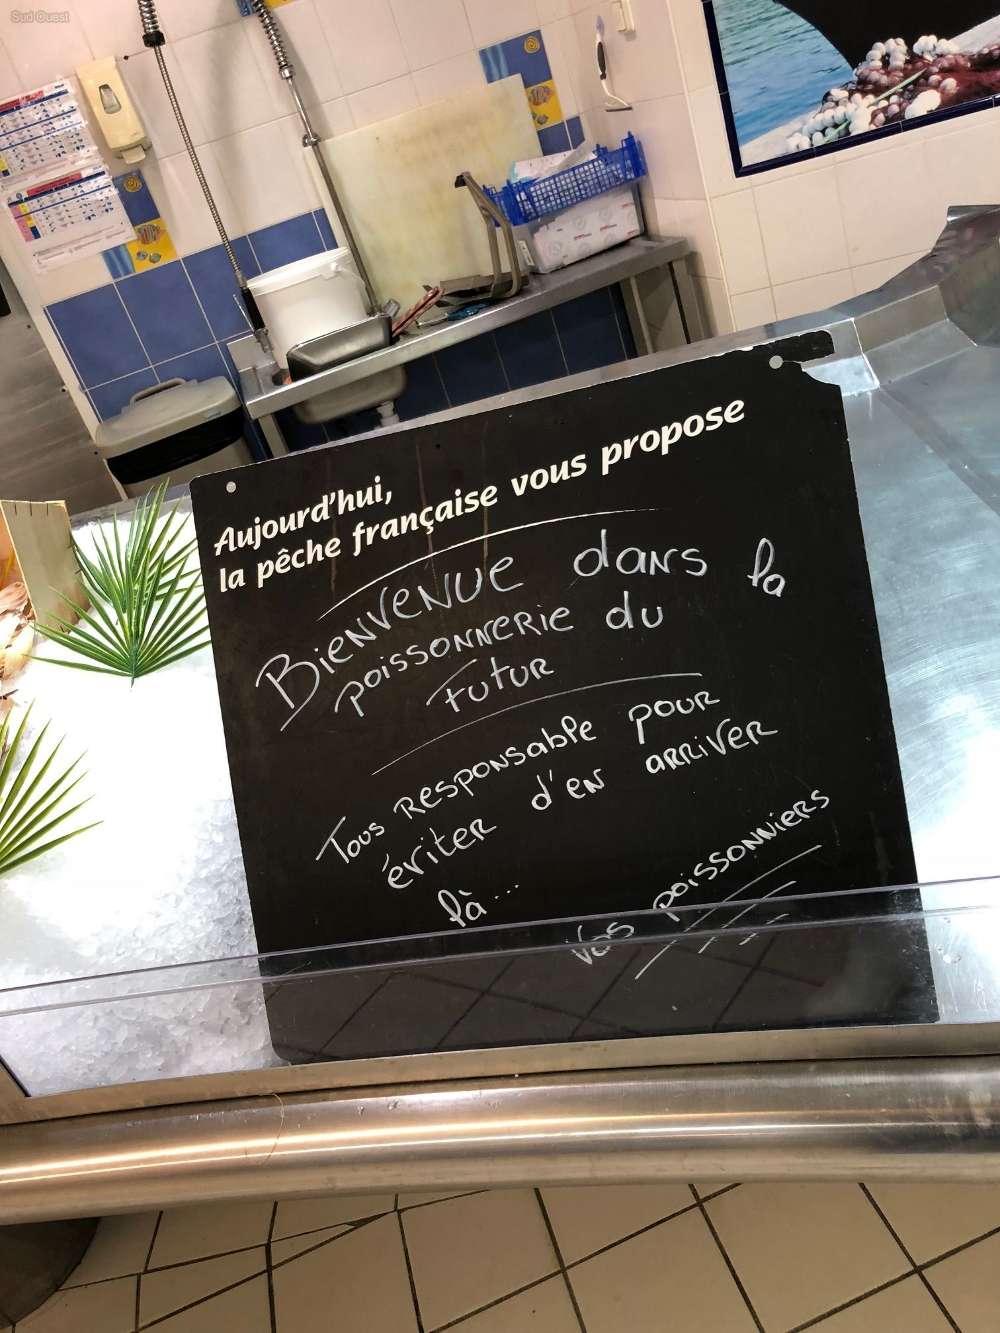 Sud Ouest
Aujourd'hui,
la pêche française vous propose
Bienvenue dans la
poissonnerie du
futur
Tous responsable pour
éviter d'en arriver
là...
Vos poissonniers